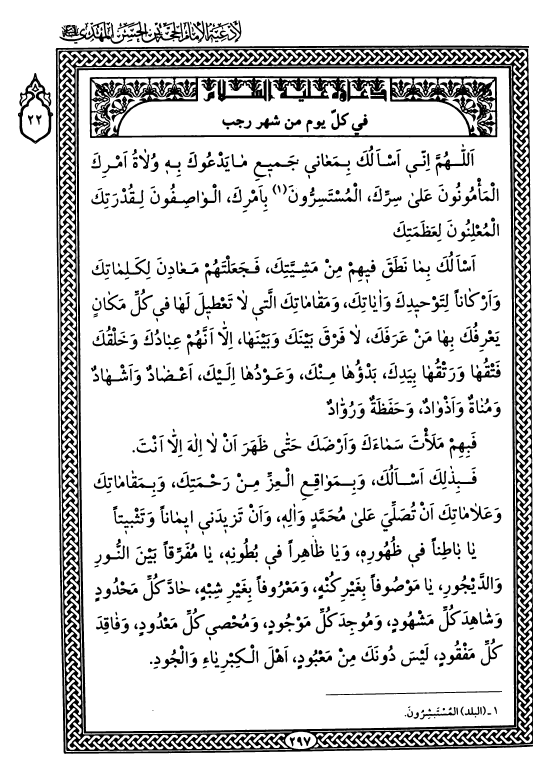 لأدعية الإمام الحجة بن الحسن المهدي
٢٢
دعاؤه عليه السلام
في كلّ يوم من شهر رجب
اَللّٰهُمَّ اِنّي اَسْاَلُكَ بِمَعٰاني جَميعِ مٰا يَدْعُوكَ بِهِ وُلاٰةُ اَمْرِكَ
الْمَأْمُونُونَ عَلىٰ سِرِّكَ، الْمُسْتَسِرُّونَ(١) بِاَمْرِكَ، الْوٰاصِفُونَ لِقُدْرَتِكَ
الْمُعْلِنُونَ لِعَظَمَتِكَ
اَسْاَلُكَ بِمٰا نَطَقَ فيهِمْ مِنْ مَشِيَّتِكَ، فَجَعَلْتَهُمْ مَعٰادِنَ لِكَلِمٰاتِكَ
وَاَرْكٰاناً لِتَوْحيدِكَ وَاٰيٰاتِكَ، وَمَقٰامٰاتِكَ الَّتي لاٰ تَعْطيلَ لَهٰا في كُلِّ مَكٰانٍ
يَعْرِفُكَ بِهٰا مَنْ عَرَفَكَ، لاٰ فَرْقَ بَيْنَكَ وَبَيْنَهٰا، اِلّٰا اَنَّهُمْ عِبٰادُكَ وَخَلْقُكَ
فَتْقُهٰا وَرَتْقُهٰا بِيَدِكَ، بَدْؤُهٰا مِنْكَ، وَعَوْدُهٰا اِلَيْكَ، اَعْضٰادٌ وَاَشْهٰادٌ
وَمُنٰاةٌ وَاَذْوٰادٌ، وَحَفَظَةٌ وَرُوّٰادٌ
فَبِهِمْ مَلَأْتَ سَمٰاءَكَ وَاَرْضَكَ حَتّٰى ظَهَرَ اَنْ لاٰ اِلٰهَ اِلّٰا اَنْتَ.
فَبِذٰلِكَ اَسْاَلُكَ، وَبِمَوٰاقِعِ الْعِزِّ مِنْ رَحْمَتِكَ، وَبِمَقٰامٰاتِكَ
وَعَلاٰمٰاتِكَ اَنْ تُصَلِّيَ عَلىٰ مُحَمَّدٍ وَاٰلِهِ، وَاَنْ تَزيدَني ايمٰاناً وَتَثْبيتاً
يٰا بٰاطِناً في ظُهُورِهِ، وَيٰا ظٰاهِراً في بُطُونِهِ، يٰا مُفَرِّقاً بَيْنَ النُّورِ
وَالدَّيْجُورِ، يٰا مَوْصُوفاً بِغَيْرِ كُنْهٍ، وَمَعْرُوفاً بِغَيْرِ شِبْهٍ، حٰادَّ كُلِّ مَحْدُودٍ
وَشٰاهِدَ كُلِّ مَشْهُودٍ، وَمُوجِدَ كُلِّ مَوْجُودٍ، وَمُحْصي كُلِّ مَعْدُودٍ، وَفٰاقِدَ
كُلِّ مَفْقُودٍ، لَيْسَ دُونَكَ مِنْ مَعْبُودٍ، اَهْلَ الْكِبْرِيٰاءِ وَالْجُودِ.
١ ـ (البلد) المُسْتَبْشِرُونَ.
٢٩٧